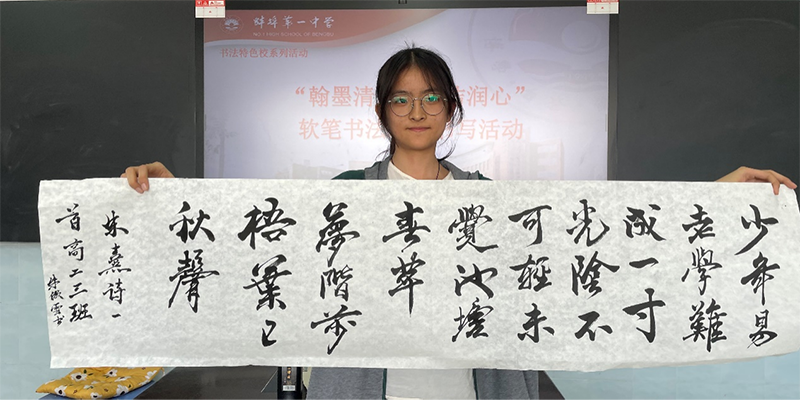 蚌埠第一中学
NO.1 HIGH SCHOOL OF BENGBU
书法特色校系列活动
“翰墨清 润心”
软笔书法 写活动
少年易
老學難
成一寸
光陰不
可輕未
覺池塘
春草
夢階前
梧葉已
秋聲
朱熹诗一
首高二三班